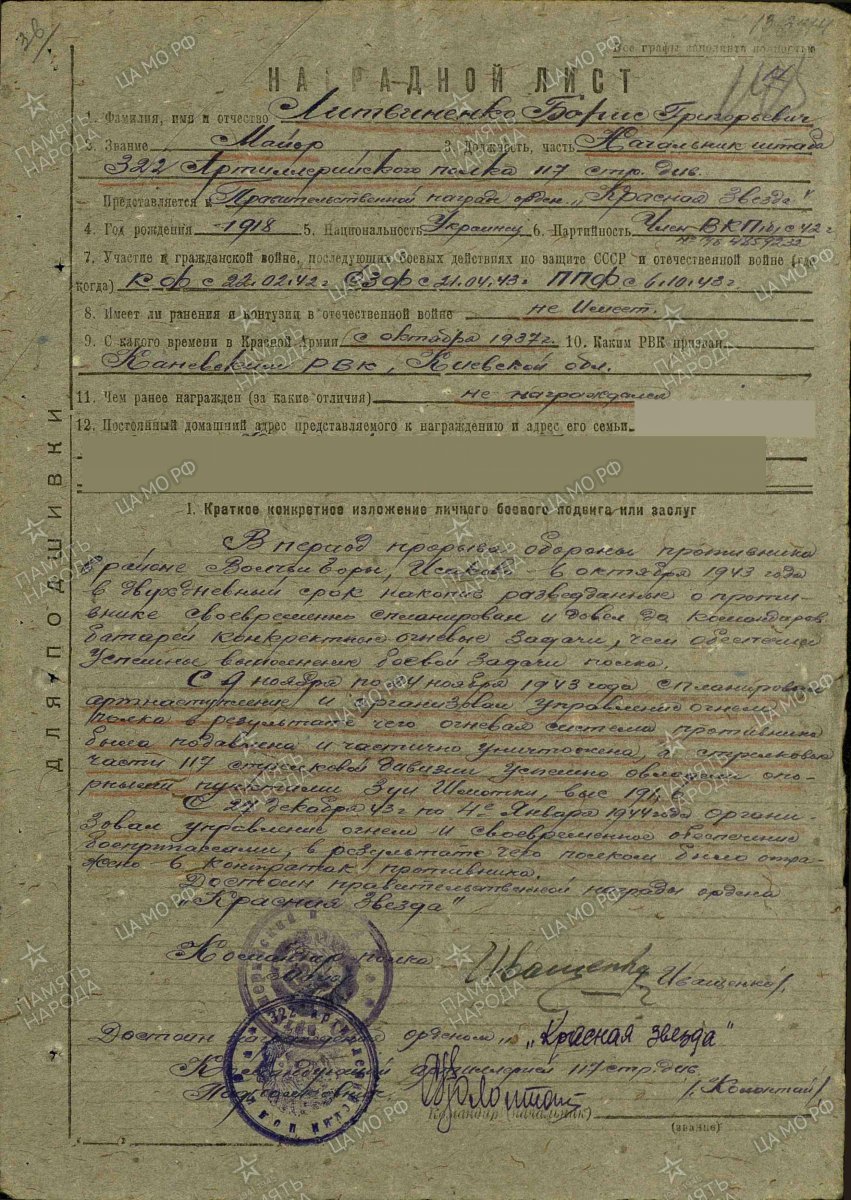 Все графы заполнять полностью
НАГРАДНОЙ ЛИСТ
1. Фамилия, имя и отчество Литвиненко Борис Григорьевич
2. Звание Майор 3. Должность, часть Начальник штаба
322 Артиллерийского полка 117 стр. див.
Представляется к Правительственной награде орден. „Красная Звезда"
4. Год рождения 1918 5. Национальность Украинец 6. Партийность Член ВКП(б) с 42 г.
7. Участие в гражданской войне, последующих боевых действиях по защите СССР и отечественной войне (где,
когда) КФ с 22.02.42 г. СЗФ с 21.04.43 г. ППФ с 6.10.43 г.
8. Имеет ли ранения и контузии в отечественной войне не Имеет.
9. С какого времени в Красной Армии с октября 1937 г. 10. Каким РВК призван
Каневским РВК, Киевской обл.
11. Чем ранее награжден (за какие отличия) не награждался
12. Постоянный домашний адрес представляемого к награждению и адрес его семьи
ДЛЯ ПОДШИВКИ
1. Краткое конкретное изложение личного боевого подвига или заслуг
В период прорыва обороны противника
в районе Волчьи Горы, Исаково 6 октября 1943 года
в двухдневный срок накопив разведданные о проти-
внике своевременно спланировал и довел до командиров
батарей конкректные огневые задачи, чем обеспечил
успешны выполнение боевой задачи полка.
С 9 ноября по ноября 1943 года спланировал
артнаступление и организовал управление огнем
полка в результате чего огневая система противника
была подавлена и частично уничтожена, а стрелковые
части 117 стрелковой дивизии успешно овладели опо-
рными пунктами Зуи Шмотки, выс 191,6
С 27 декабря 43 г по 4е Января 1944 года органи-
зовал управление огнем и своевременное обеспечение
боеприпасами, в результате чего полком было отра-
жено 6 контратак противника.
Достоин правительственной награды ордена
„Красная Звезда"
Командир полка
Иващенко /Иващенко/.
Достоин награждения орденом „Красная звезда"
Командующий артиллерией 117 стр. див.
Подполковник /Коломтай/
Командир (начальник)
(звание)
ПАМЯТЬ НАРОДА
ЦАМО.РФ